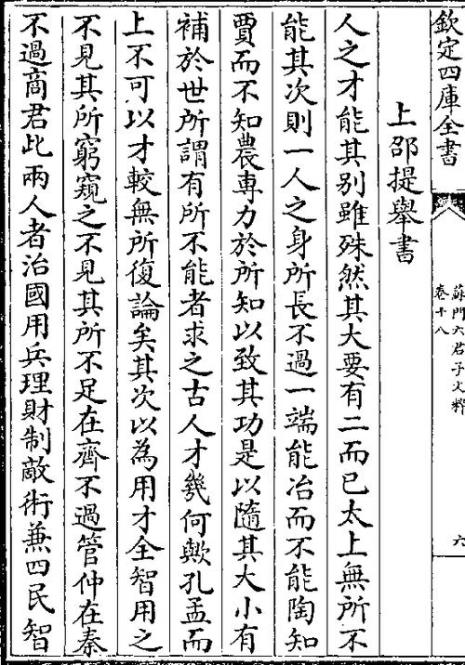 欽定四庫全書
蘇門六君子文粹
卷十八
六
上邵提舉書
人之才能其别雖殊然其大要有二而已太上無所不
能其次則一人之身所長不過一端能冶而不能陶知
賈而不知農專力於所知以致其功是以隨其大小有
補於世所謂有所不能者求之古人才幾何歟孔孟而
上不可以才較無所復論矣其次以為用才全智用之
不見其所窮窺之不見其所不足在齊不過管仲在秦
不過商君此兩人者治國用兵理財制敵術兼四民智